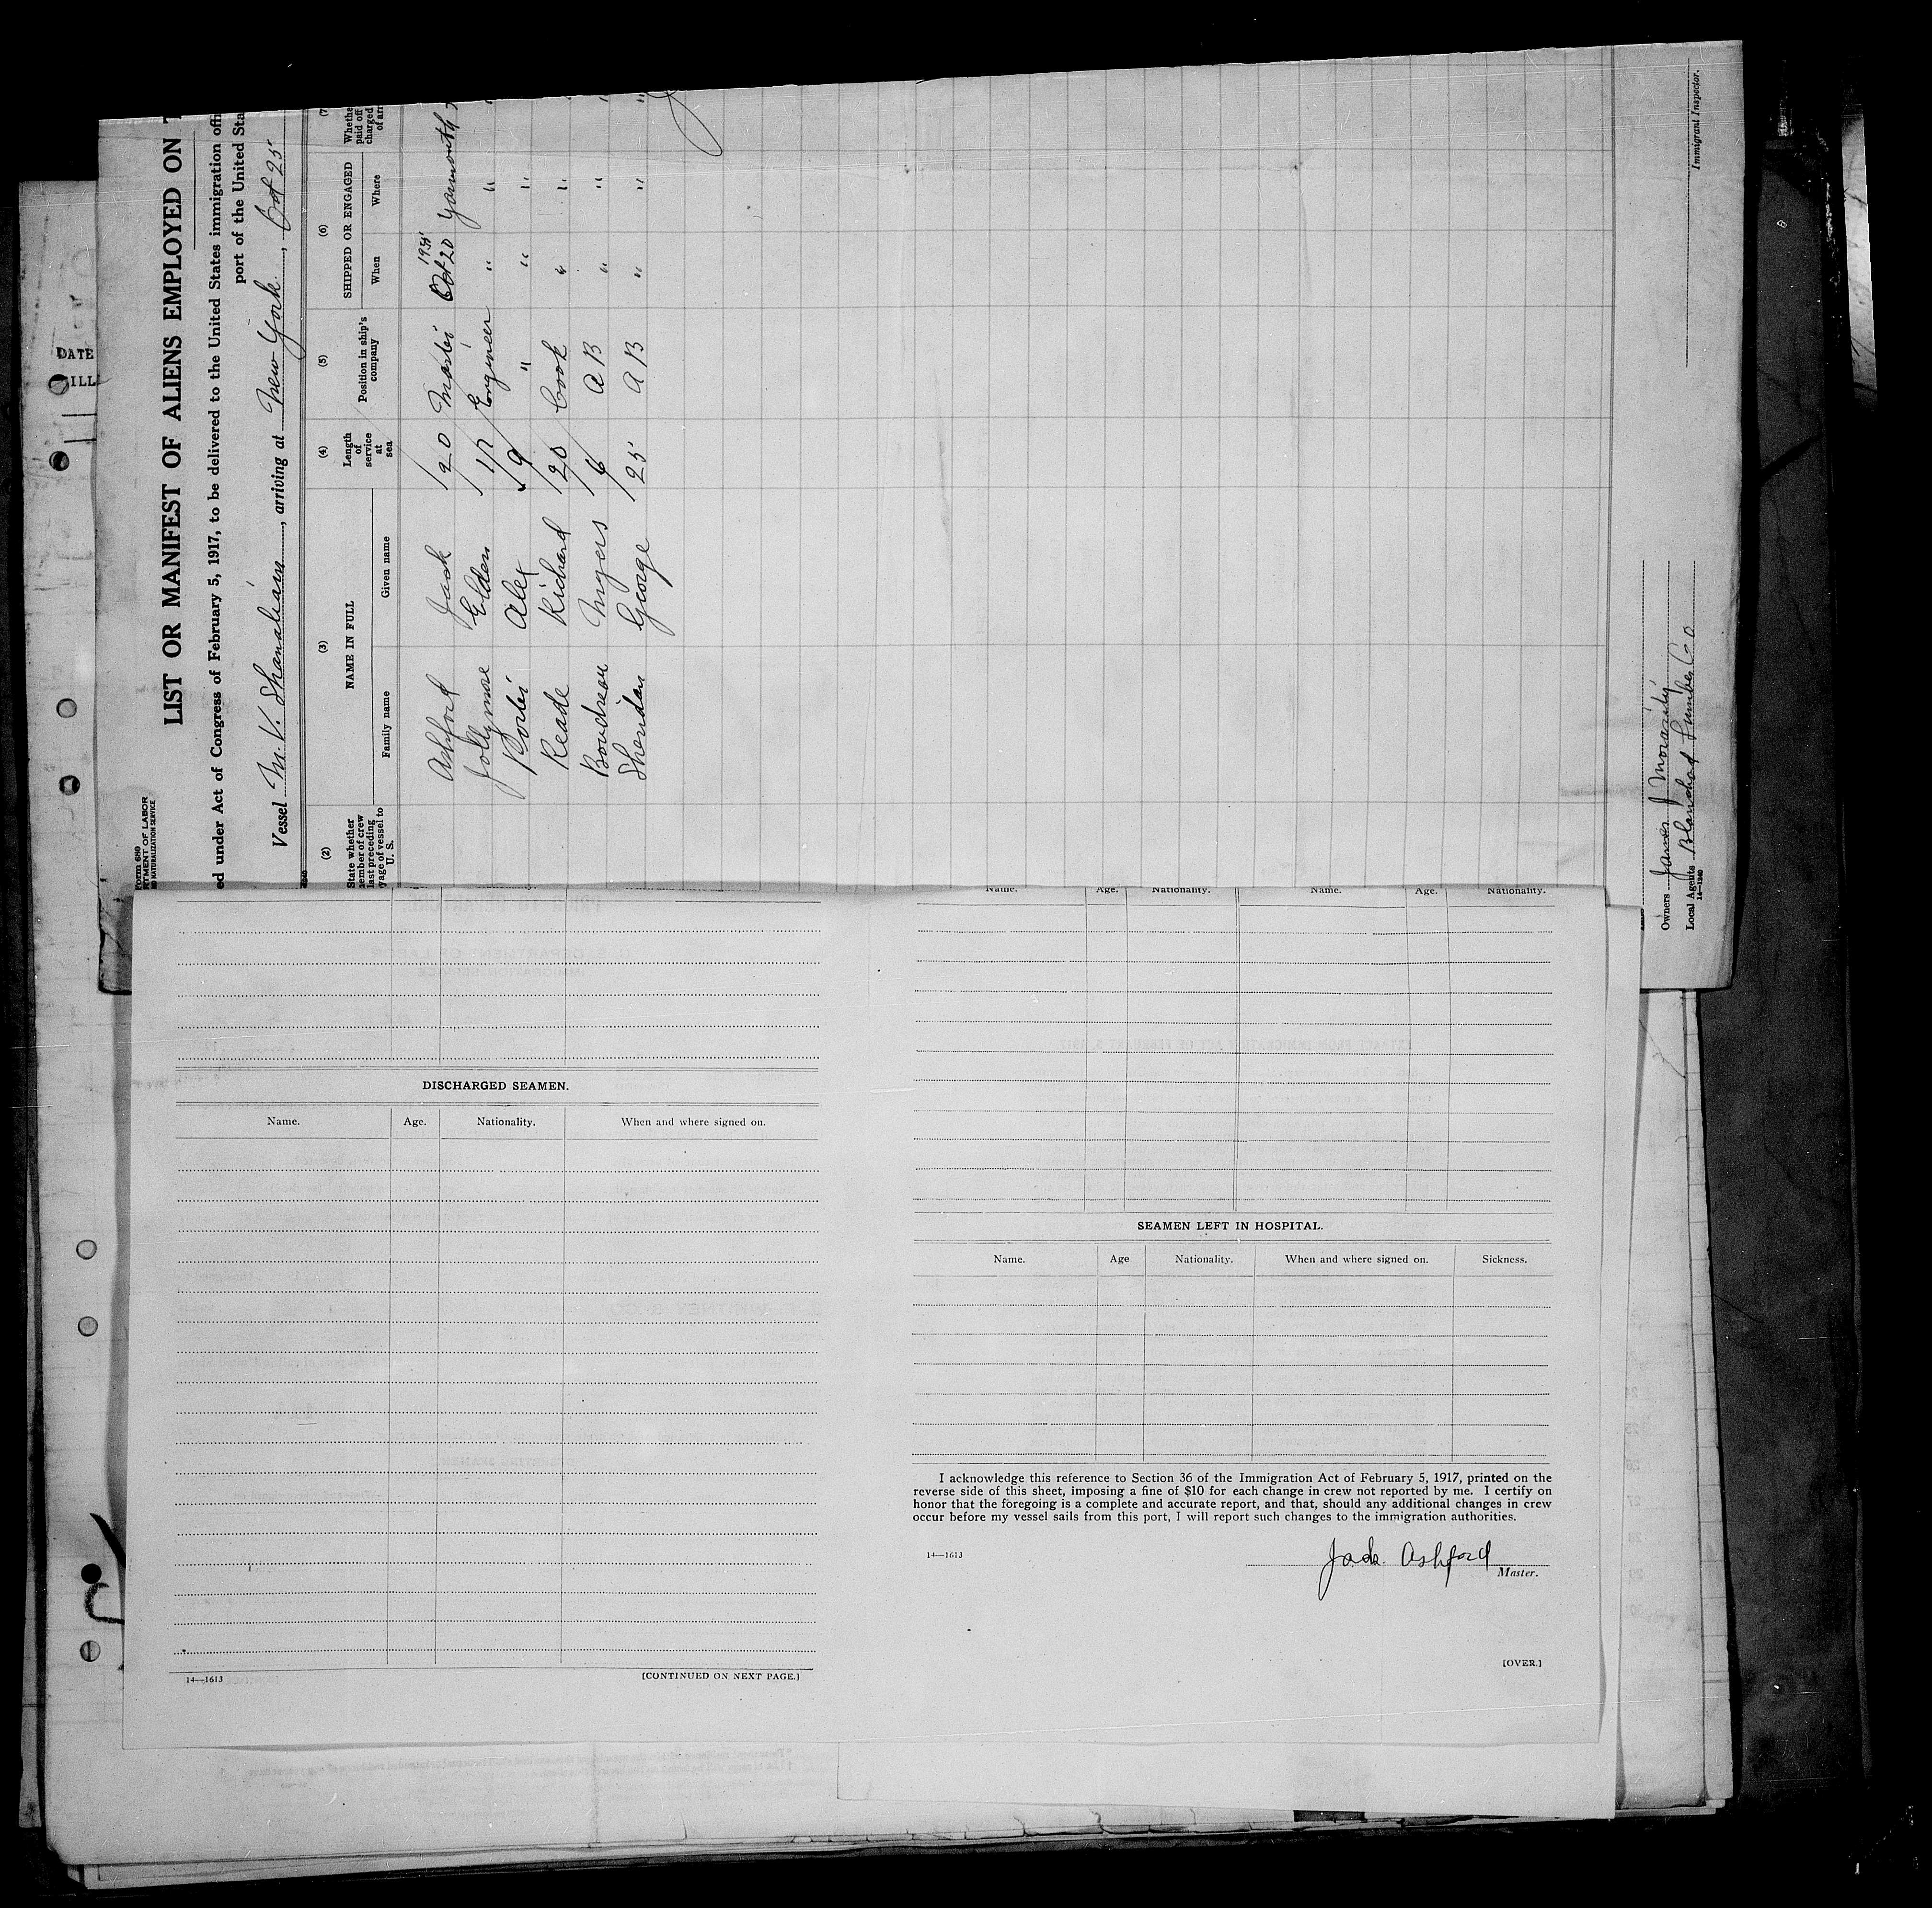 Form 680
RTMENT OF LABOR
D NATURALIZATION SERVICE
LIST OR MANIFEST OF ALIENS EMPLOYED ON T
ed under Act of Congress of February 5, 1917, to be delivered to the United States immigration offi
port of the United Sta
Vessel M.V. Shanalian, arriving at New York, Oct 25
(2) (3) (4) (5) (6) (7)
State whether
member of crew
last preceding
yage of vessel to
U. S.
NAME IN FULL
Family name Given name
Length
of
service
at
sea
Position in ship's
company
SHIPPED OR ENGAGED
When Where
Whethe
paid off
charged
of arr
Ashford Jack 20 Master Oct 20 Yarmouth
Jollymore Elden 17 Engineer " "
Porter Alex 9 " " "
Reade Richard 20 Cook " "
Boudreau Myers 6 A B " "
Sheridan George 25 A B " "
Immigrant Inspector.
Owners James J Moriarity
Local Agents Blanchad Lumber Co
14—1240
DATE
ILL
DISCHARGED SEAMEN.
Name. Age. Nationality. When and where signed on.
14—1613
[CONTINUED ON NEXT PAGE.]
Name. Age. Nationality. Name. Age. Nationality.
SEAMEN LEFT IN HOSPITAL.
Name. Age Nationality. When and where signed on. Sickness.
I acknowledge this reference to Section 36 of the Immigration Act of February 5, 1917, printed on the
reverse side of this sheet, imposing a fine of $10 for each change in crew not reported by me. I certify on
honor that the foregoing is a complete and accurate report, and that, should any additional changes in crew
occur before my vessel sails from this port, I will report such changes to the immigration authorities.
14—1613
Jack Ashford
Master.
[OVER.]